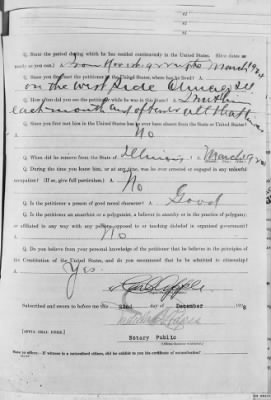 Q. State the period during which he has resided continuously in the United States. (Give dates as nearly as you can.)
Q. Since you first met the petitioner in the United States, where has he lived? A.
on the West Side Chicago Ill
Q. How often did you see the petitioner while he was in this State? A.
each month
Q. Since you first met him in the United States has he ever been absent from the State or United States?
A. No
Q. When did he remove from the State of Illinois ? A. March
Q. During the time you knew him, or at any time, was he ever arrested or engaged in any unlawful
occupation? (If so, give full particulars.) A. No
Q. Is the petitioner a person of good moral character? A. Good
Q. Is the petitioner an anarchist or a polygamist, a believer in anarchy or in the practice of polygamy,
or affiliated in any way with any persons opposed to or teaching disbelief in organized government?
A. No
Q. Do you believe from your personal knowledge of the petitioner that he believes in the principles of
the Constitution of the United States, and do you recommend that he be admitted to citizenship?
A. Yes.
Subscribed and sworn to before me this 22nd day of December
[AFFIX SEAL HERE.]
Notary Public
(Official character.)